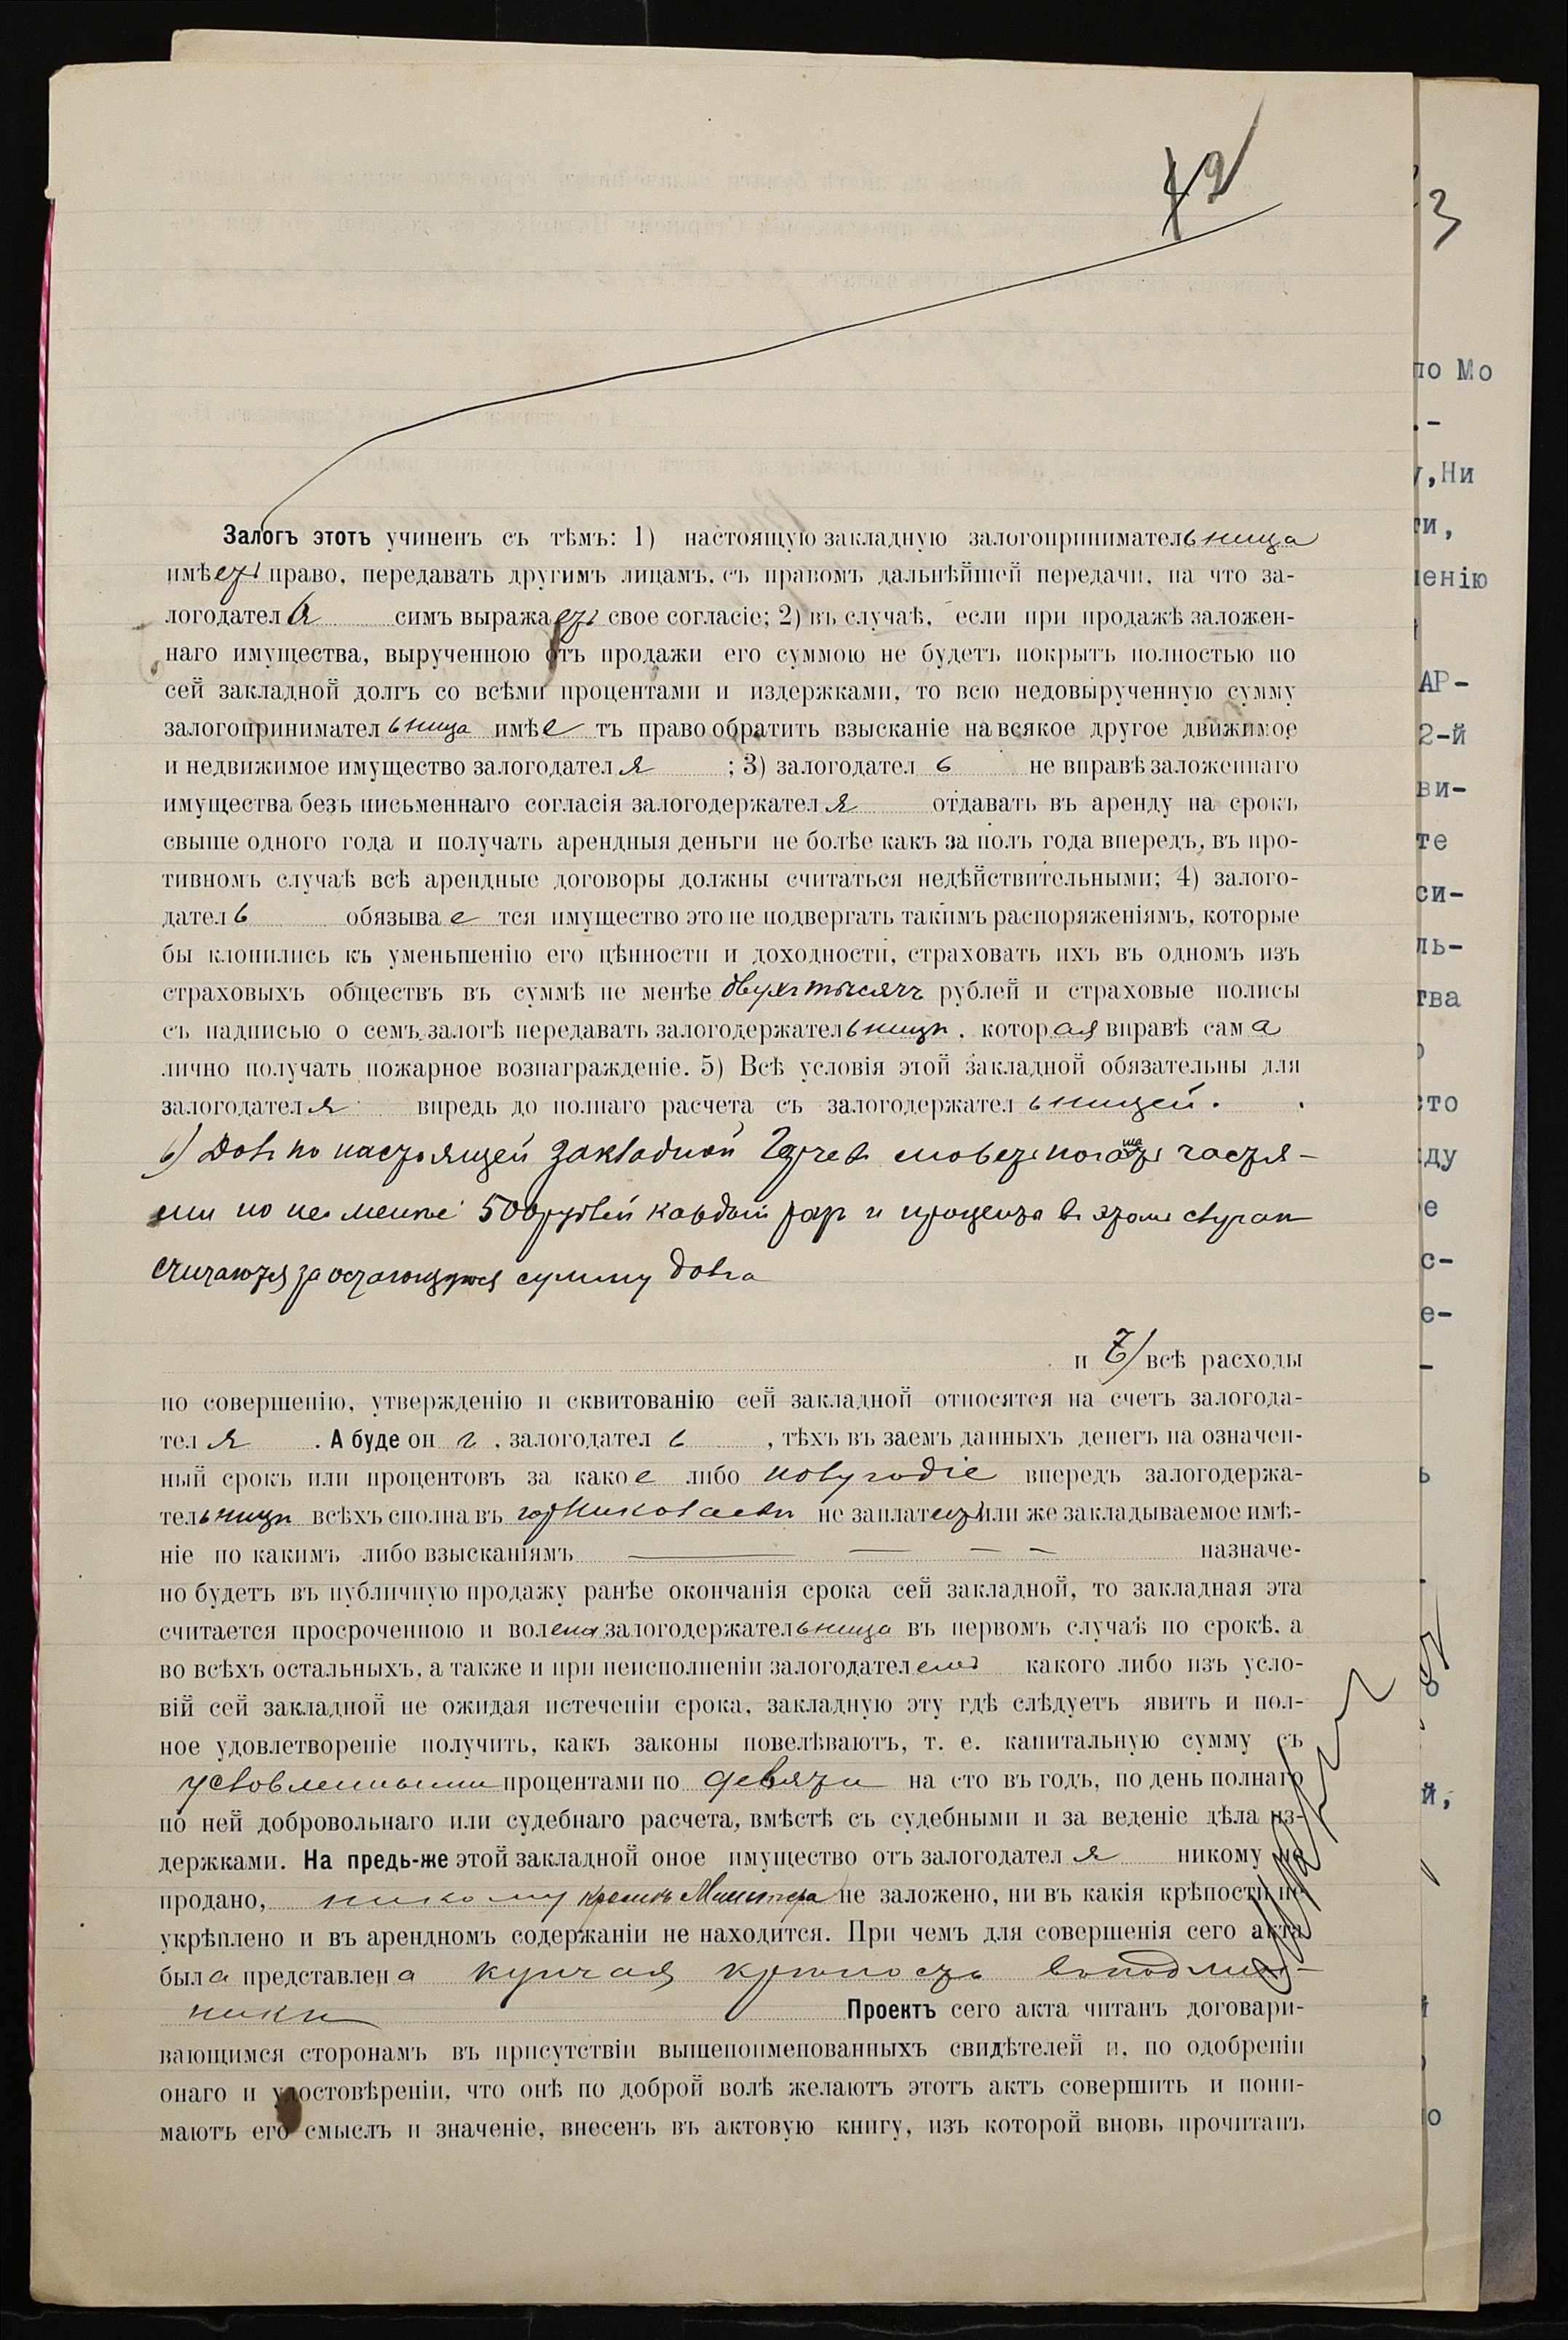 42
3
Залогъ этотъ учиненъ съ тѣмъ: 1) настоящую закладную залогопринимательница
имѣетъ право, передавать другимъ лицамъ, съ правомъ дальнѣйшей передачи, на что за-
логодатель симъ выражаетъ свое согласіе; 2) въ случаѣ, если при продажѣ заложен-
наго имущества, вырученною отъ продажи его суммою не будетъ покрытъ полностью по
сей закладной долгъ со всѣми процентами и издержками, то всю недовырученную сумму
залогопринимательница имѣетъ право обратить взысканіе на всякое другое движимое
и недвижимое имущество залогодателя ; 3) залогодатель не вправѣ заложеннаго
имущества безъ письменнаго согласія залогодержателя отдавать въ аренду на срокъ
свыше одного года и получать арендныя деньги не болѣе какъ за полъ года впередъ, въ про-
тивномъ случаѣ всѣ арендные договоры должны считаться недѣйствительными; 4) залого-
датель обязывается имущество это не подвергать такимъ распоряженіямъ, которые
бы клонились къ уменьшенію его цѣнности и доходности, страховать ихъ въ одномъ изъ
страховыхъ обществъ въ суммѣ не менѣе двухъ тысячъ рублей и страховые полисы
съ надписью о семъ залогѣ передавать залогодержательницѣ, которая вправѣ сама
лично получать пожарное вознагражденіе. 5) Всѣ условія этой закладной обязательны для
залогодателя впредь до полнаго расчета съ залогодержательницей.
6) Долгъ по настоящей закладной можетъ погашать частя-
ми но не менѣе 500 рублей каждый разъ и проценты въ этомъ случаѣ
считаются за остающуюся сумму долга
и 7) всѣ расходы
по совершенію, утвержденію и сквитованію сей закладной относятся на счетъ залогода-
теля . А буде онъ , залогодатель , тѣхъ въ заемъ данныхъ денегъ на означен-
ный срокъ или процентовъ за какое либо полугодіе впередъ залогодержа-
тельницѣ всѣхъ сполна въ гор Николаевѣ не заплатитъ или же закладываемое имѣ-
ніе по какимъ либо взысканіямъ — — - - назначе-
но будетъ въ публичную продажу ранѣе окончанія срока сей закладной, то закладная эта
считается просроченною и волена залогодержательница въ первомъ случаѣ по срокѣ, а
во всѣхъ остальныхъ, а также и при неисполненіи залогодателемъ какого либо изъ усло-
вій сей закладной не ожидая истеченіи срока, закладную эту гдѣ слѣдуетъ явить и пол-
ное удовлетвореніе получить, какъ законы повелѣваютъ, т. е. капитальную сумму съ
условленными процентами по девяти на сто въ годъ, по день полнаго
по ней добровольнаго или судебнаго расчета, вмѣстѣ съ судебными и за веденіе дѣла из-
держками. На предь-же этой закладной оное имущество отъ залогодателя никому не
продано, никому кромѣ не заложено, ни въ какія крѣпости не
укрѣплено и въ арендномъ содержаніи не находится. При чемъ для совершенія сего акта
была представлена купчая крѣпость въ подлин-
никѣ Проектъ сего акта читанъ договари-
вающимся сторонамъ въ присутствіи вышепоименованныхъ свидѣтелей и, по одобреніи
онаго и удостовѣреніи, что онѣ по доброй волѣ желаютъ этотъ актъ совершить и пони-
маютъ его смыслъ и значеніе, внесенъ въ актовую книгу, изъ которой вновь прочитанъ
по Мо
,Ни
ти,
енію
АР-
2-й
ви-
те
си-
ль-
тва
то
ду
е
с-
е-
й,
о